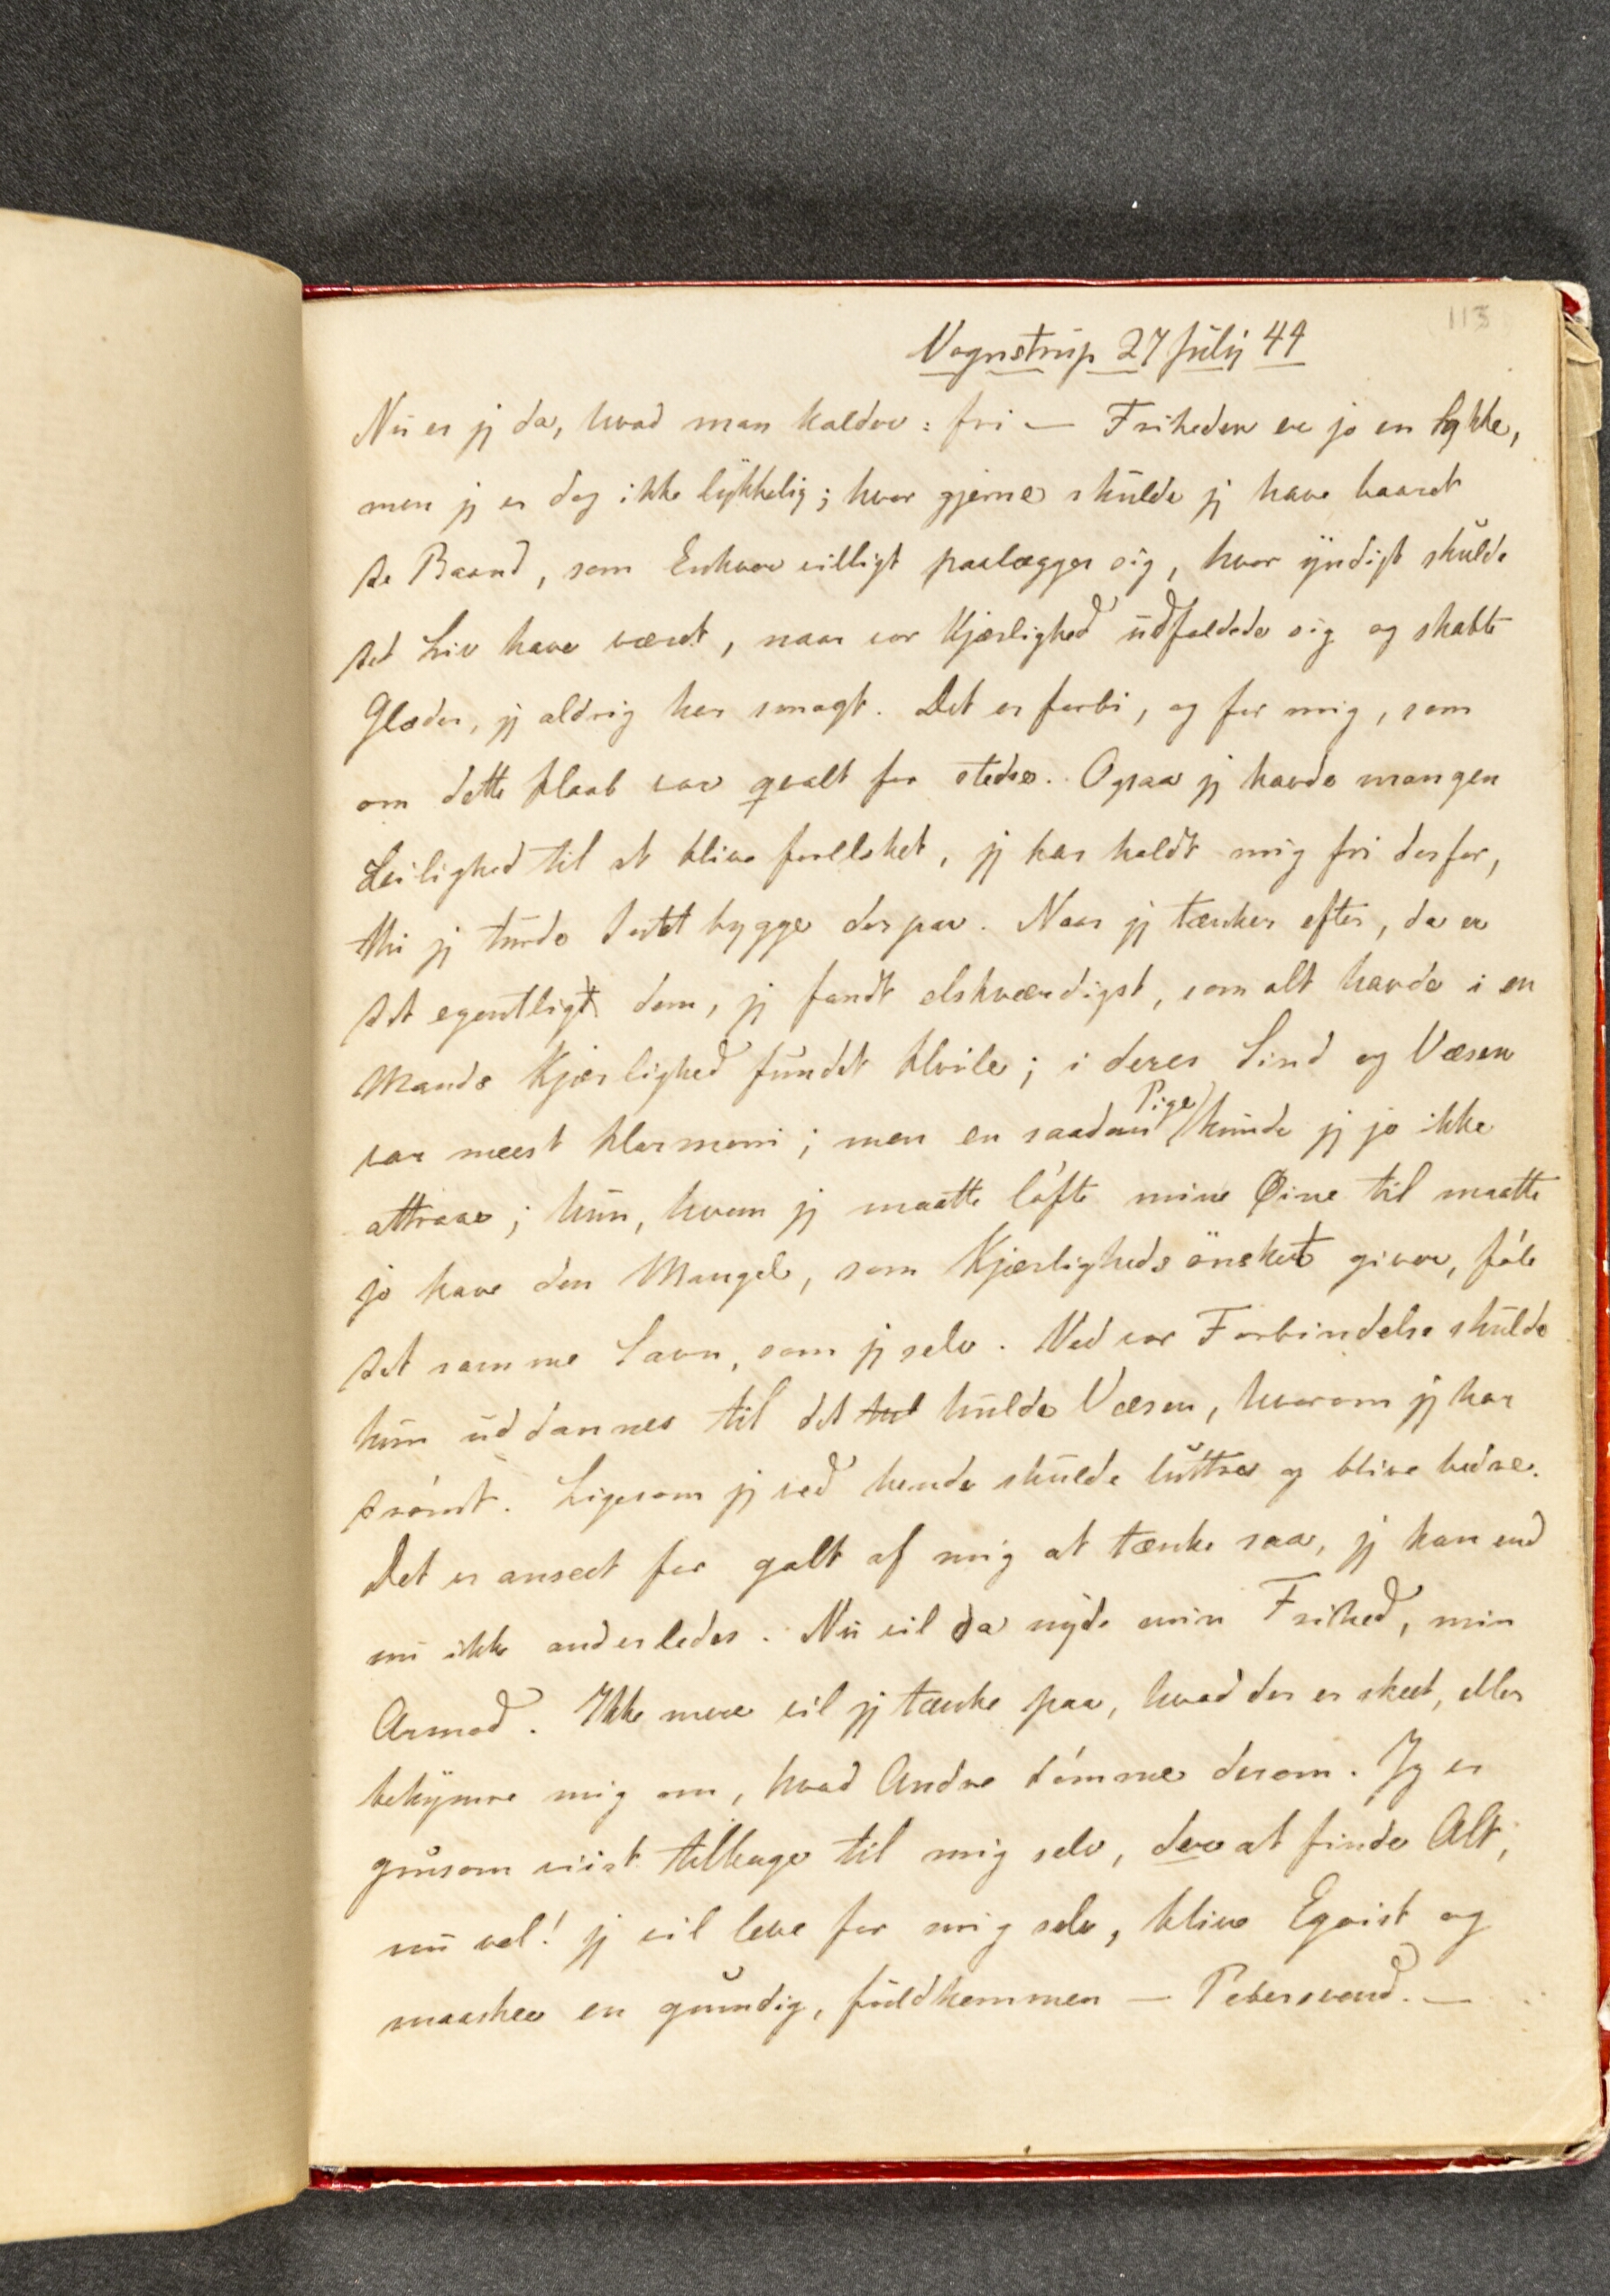 113
Vognstrup 27 July 44
Nu er jg da, hvad man kalder: fri — Friheden er jo en Lykke,
men jg er dog ikke lykkelig; hvor gjerne skulde jg have baaret
de Baand, som Enhver villigt paalægger sig, hvor yndigt skulde
det Liv have været, naar vor Kjærlighed udfoldede sig og skabte
Glæder, jg aldrig har smagt. Det er forbi, og for mig, som
om dette Haab var qvalt for stedse. Ogsaa jg havde mangen
Leilighed til at blive forelsket, jg har holdt mig fri derfor,
thi jg turde Intet bygge derpaa. Naar jg tænker efter, da er
det egentligt dem, jg fandt elskværdigst, som alt havde i en
Mands Kjærlighed fundet Hvile; i deres Sind og Væsen
var meest Harmoni; men en saadan Pige kunde jg jo ikke
attraae; hun, hvem jg maatte løfte mine Øine til maatte
jo have den Mangel, som Kjærligheds ønsket giver, føle
det samme Savn, som jg selv. Ved vor Forbindelse skulde
hun uddannes til det hul hulde Væsen, hvorom jg har
drømt. Ligesom jg ved hende skulde luttres og blive bedre.
Det er anseet for galt af mig at tænke saa, jg kan end
nu ikke anderledes. Nu vil da nyde min Frihed, min
Armod. Ikke mere vil jg tænke paa, hvad der er skeet, eller
bekymre mig om, hvad Andre dømme derom. Jg er
grusom viist tilbage til mig selv, der at finde Alt,
nu vel! jg vil leve for mig selv, blive Egoist og
maaskee en grundig, fuldkommen — Pebersvend. —